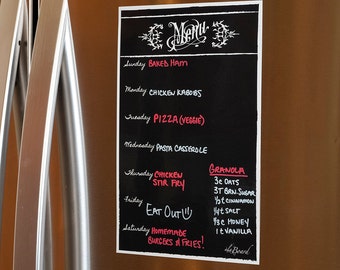 Menu
Sunday BAKED HAM
Monday CHICKEN KABOBS
Tuesday PIZZA (VEGGIE)
Wednesday PASTA CASSEROLE
Thursday CHICKEN
STIR FRY
Friday
EAT OUT
Saturday HOMEMADE
BURGERS N FRIES!
GRANOLA
3c OATS
3T BRN. SUGAR
½t CINNAMON
¼t SALT
⅓c HONEY
1t VANILLA